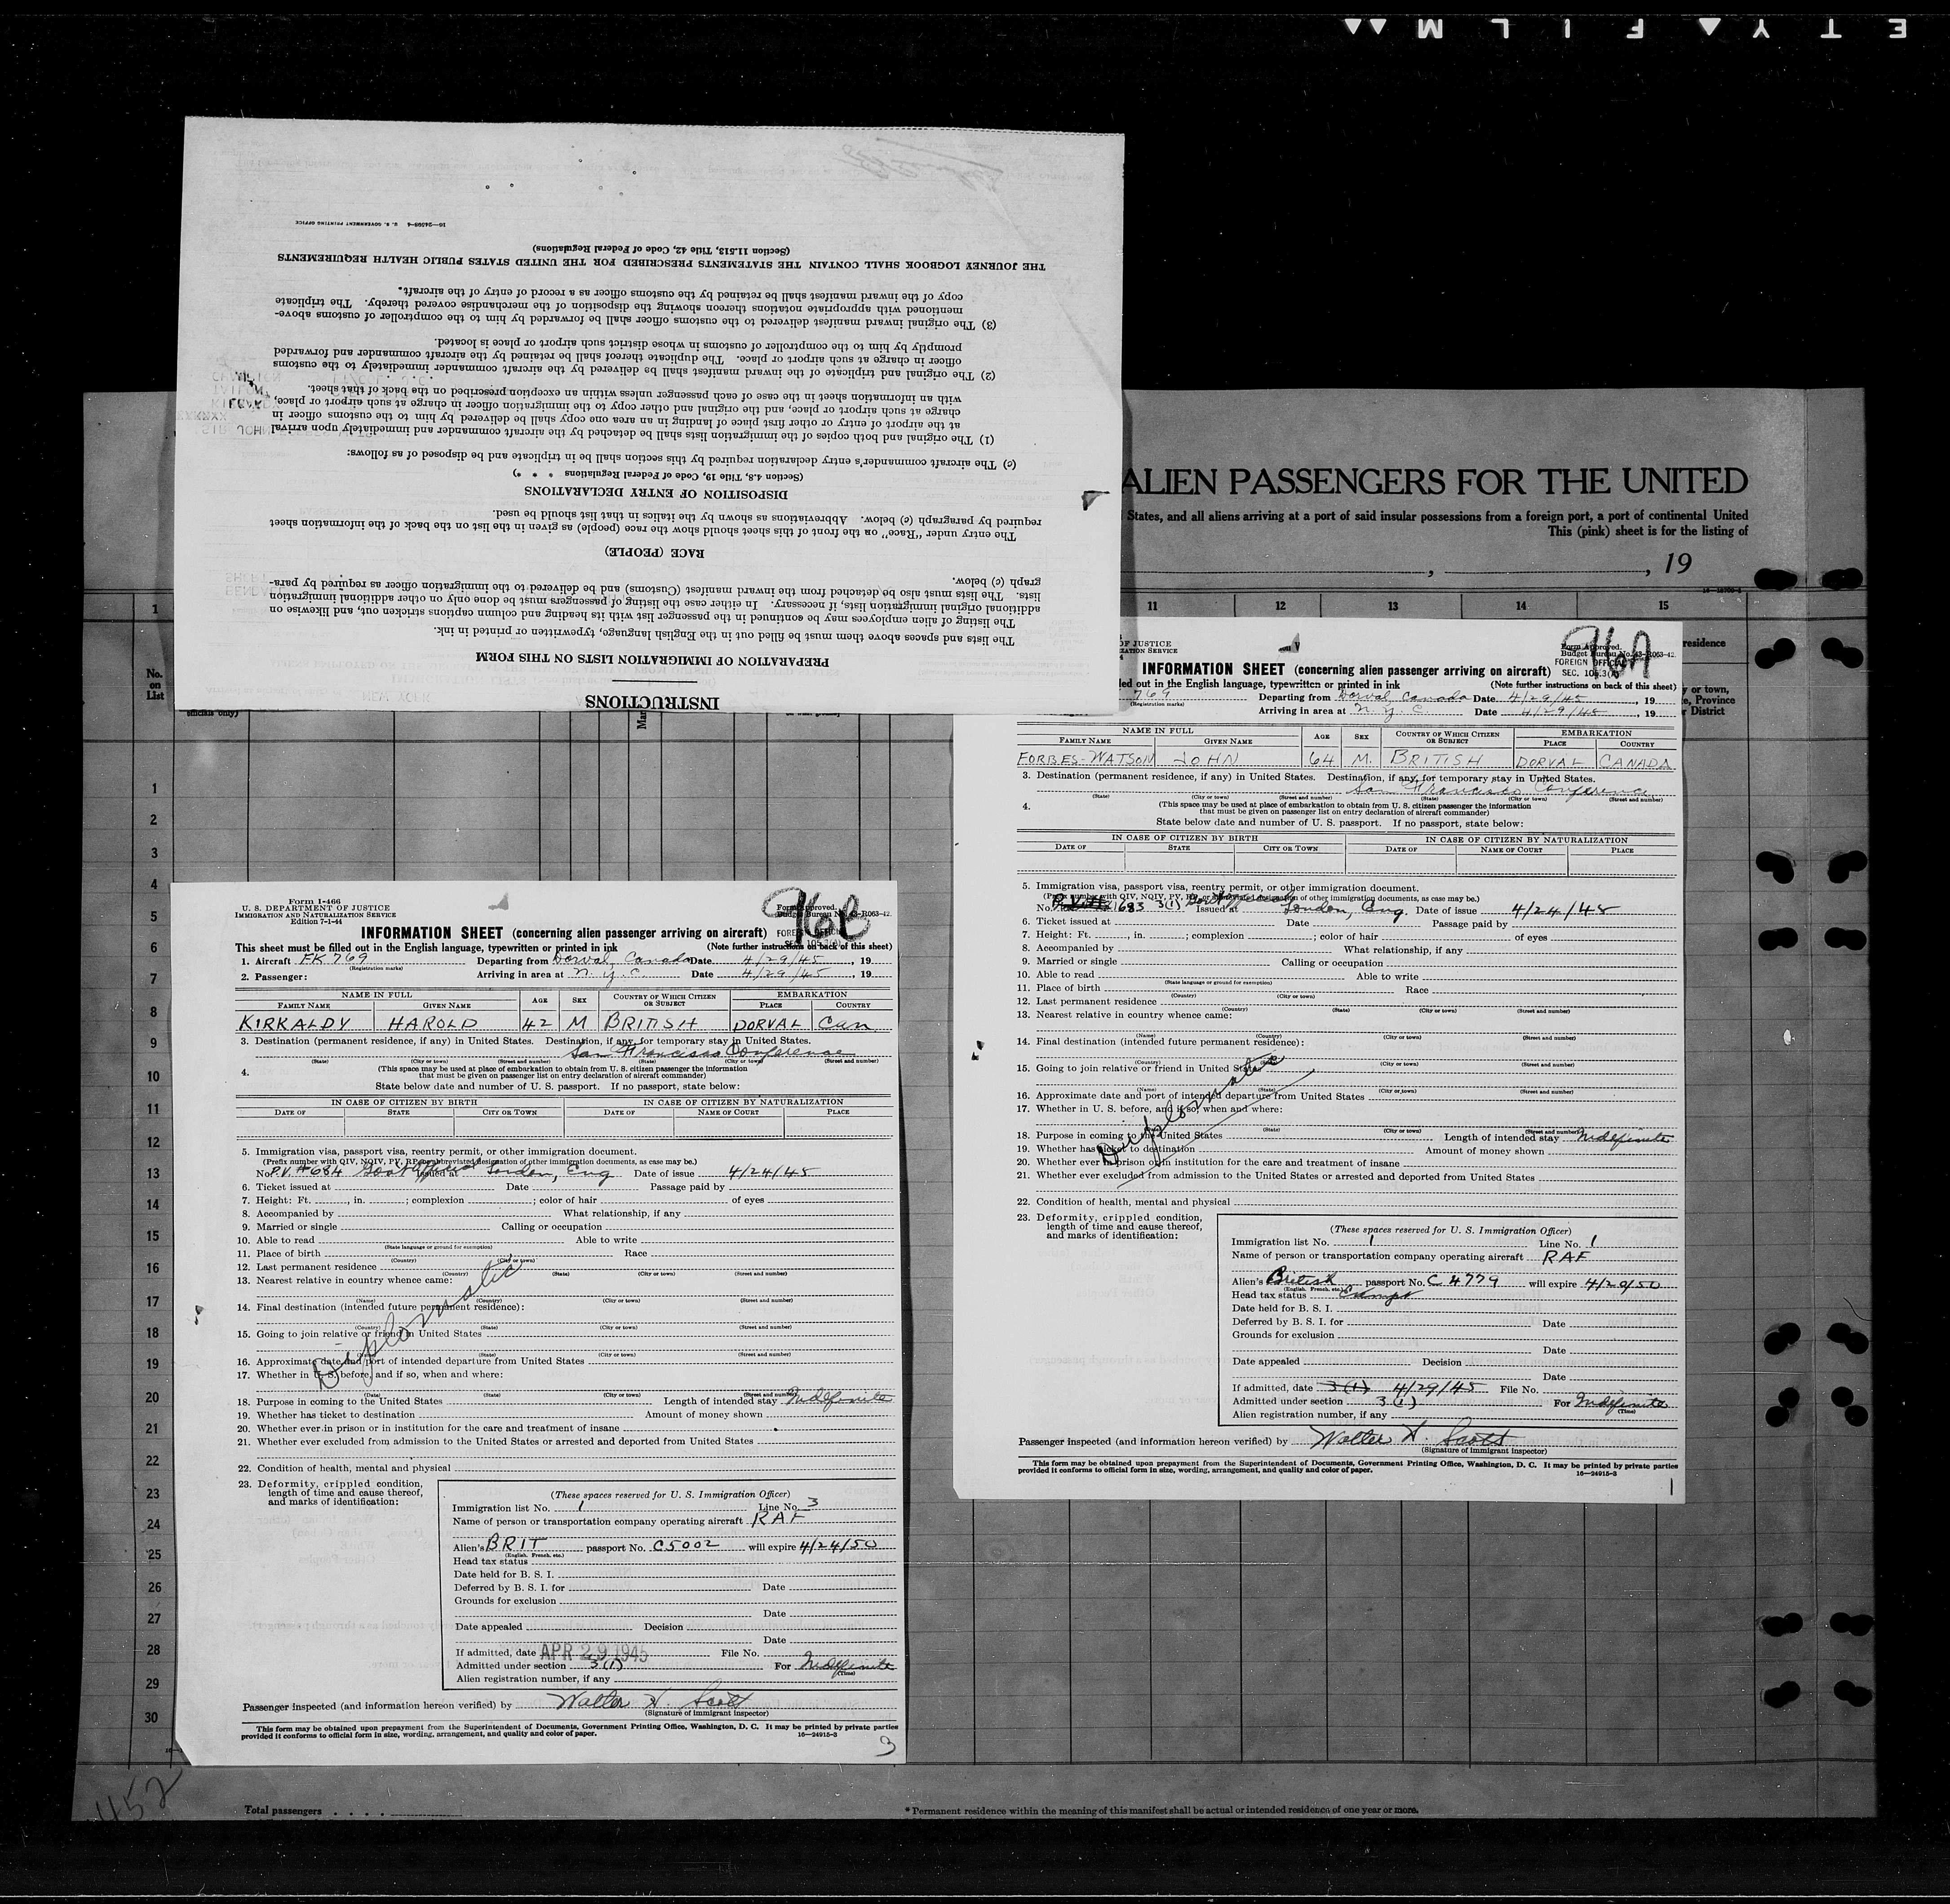 ETY FILM
INSTRUCTIONS
PREPARATION OF IMMIGRATION LISTS ON THIS FORM
The lists and spaces above them must be filled out in the English language, typewritten or printed in ink.
The listing of alien employees may be continued in the passenger list with its heading and column captions stricken out, and likewise on
additional original immigration lists, if necessary. In either case the listing of passengers must be done only on other additional immigration
lists. The lists must also be detached from the inward manifest (Customs) and be delivered to the immigration officer as required by para-
graph (c) below.
RACE (PEOPLE)
The entry under "Race" on the front of this sheet should show the race (people) as given in the list on the back of the information sheet
required by paragraph (e) below. Abbreviations as shown by the italics in that list should be used.
DISPOSITION OF ENTRY DECLARATIONS
(Section 4.8, Title 19, Code of Federal Regulations * * *)
(c) The aircraft commander's entry declaration required by this section shall be in triplicate and be disposed of as follows:
(1) The original and both copies of the immigration lists shall be detached by the aircraft commander and immediately upon arrival
at the airport of entry or other first place of landing in an area one copy shall be delivered by him to the customs officer in
charge at such airport or place, and the original and other copy to the immigration officer in charge at such airport or place,
with an information sheet in the case of each passenger unless within an exception prescribed on the back of that sheet.
(2) The original and triplicate of the inward manifest shall be delivered by the aircraft commander immediately to the customs
officer in charge at such airport or place. The duplicate thereof shall be retained by the aircraft commander and forwarded
promptly by him to the comptroller of customs in whose district such airport or place is located.
(3) The original inward manifest delivered to the customs officer shall be forwarded by him to the comptroller of customs above-
mentioned with appropriate notations thereon showing the disposition of the merchandise covered thereby. The triplicate
copy of the inward manifest shall be retained by the customs officer as a record of entry of the aircraft.
THE JOURNEY LOGBOOK SHALL CONTAIN THE STATEMENTS PRESCRIBED FOR THE UNITED STATES PUBLIC HEALTH REQUIREMENTS
(Section 11.513, Title 42, Code of Federal Regulations)
16—24598-4 U. S. GOVERNMENT PRINTING OFFICE
ALIEN PASSENGERS FOR THE UNITED
States, and all aliens arriving at a port of said insular possessions from a foreign port, a port of continental United
This (pink) sheet is for the listing of
, , 19
1 11 12 13 14 15
No.
on
List
residence
y or town,
e, Province
r District
1
2
3
4
5
6
7
8
9
10
11
12
13
14
15
16
17
18
19
20
21
22
23
24
25
26
27
28
29
30
452
Total passengers . . . .
* Permanent residence within the meaning of this manifest shall be actual or intended residence of one year or more.
OF JUSTICE
ZATION SERVICE
Form Approved.
Budget Bureau No. 43-R063-42.
FOREIGN OFFICIAL
SEC. 105.3(A)
INFORMATION SHEET (concerning alien passenger arriving on aircraft)
led out in the English language, typewritten or printed in ink (Note further instructions on back of this sheet)
769 Departing from Dorval, Canada Date 4/29/45, 19
(Registration marks)
Arriving in area at N. Y. C. Date 4/29/45, 19
NAME IN FULL AGE SEX COUNTRY OF WHICH CITIZEN OR SUBJECT EMBARKATION
FAMILY NAME GIVEN NAME PLACE COUNTRY
FORBES-WATSON JOHN 64 M. BRITISH DORVAL CANADA
3. Destination (permanent residence, if any) in United States. Destination, if any, for temporary stay in United States.
San Francisco Conference
(State) (City or town) (Street and number) (State) (City or town) (Street and number)
4. (This space may be used at place of embarkation to obtain from U. S. citizen passenger the information
that must be given on passenger list on entry declaration of aircraft commander)
State below date and number of U. S. passport. If no passport, state below:
IN CASE OF CITIZEN BY BIRTH IN CASE OF CITIZEN BY NATURALIZATION
DATE OF STATE CITY OR TOWN DATE OF NAME OF COURT PLACE
5. Immigration visa, passport visa, reentry permit, or other immigration document.
(Prefix number with QIV, NQIV, PV, RP, or abbreviated designation of other immigration documents, as case may be.)
No. 683 3(1) Issued at London, Eng. Date of issue 4/24/45
6. Ticket issued at Date Passage paid by
7. Height: Ft. , in. ; complexion ; color of hair of eyes
8. Accompanied by What relationship, if any
9. Married or single Calling or occupation
10. Able to read Able to write
(State language or ground for exemption)
11. Place of birth Race
(Country) (City or town)
12. Last permanent residence
(Country) (State) (City or town) (Street and number)
13. Nearest relative in country whence came:
(Name) (Country) (City or town) (Street and number)
14. Final destination (intended future permanent residence):
(Country) (State) (City or town) (Street and number)
15. Going to join relative or friend in United States
(Name) (State) (City or town) (Street and number)
16. Approximate date and port of intended departure from United States
17. Whether in U. S. before, and if so, when and where:
(State) (City or town) (Street and number)
Diplomatic
18. Purpose in coming to the United States Length of intended stay Indefinite
19. Whether has ticket to destination Amount of money shown
20. Whether ever in prison or in institution for the care and treatment of insane
21. Whether ever excluded from admission to the United States or arrested and deported from United States
22. Condition of health, mental and physical
23. Deformity, crippled condition,
length of time and cause thereof,
and marks of identification:
(These spaces reserved for U. S. Immigration Officer)
Immigration list No. 1 Line No. 1
Name of person or transportation company operating aircraft RAF
Alien's British passport No. C 4779 will expire 4/20/50
(English, French, etc.)
Head tax status Exempt
Date held for B. S. I.
Deferred by B. S. I. for Date
Grounds for exclusion
Date
Date appealed Decision
Date
If admitted, date 3(1) 4/29/45 File No.
Admitted under section 3(1) For Indefinite
(Time)
Alien registration number, if any
Passenger inspected (and information hereon verified) by Walter H. Scott
(Signature of immigrant inspector)
This form may be obtained upon prepayment from the Superintendent of Documents, Government Printing Office, Washington, D. C. It may be printed by private parties
provided it conforms to official form in size, wording, arrangement, and quality and color of paper. 16—24915-3
1
Form I-466
U. S. DEPARTMENT OF JUSTICE
IMMIGRATION AND NATURALIZATION SERVICE
Edition 7-1-44
Form Approved.
Budget Bureau No. 43-R063-42.
FOREIGN OFFICIAL
SEC. 105.3(A)
INFORMATION SHEET (concerning alien passenger arriving on aircraft)
This sheet must be filled out in the English language, typewritten or printed in ink (Note further instructions on back of this sheet)
1. Aircraft FK 769 Departing from Dorval, Canada Date 4/29/45, 19
(Registration marks)
2. Passenger: Arriving in area at N. Y. C. Date 4/29/45, 19
NAME IN FULL AGE SEX COUNTRY OF WHICH CITIZEN OR SUBJECT EMBARKATION
FAMILY NAME GIVEN NAME PLACE COUNTRY
KIRKALDY HAROLD 42 M BRITISH DORVAL Can
3. Destination (permanent residence, if any) in United States. Destination, if any, for temporary stay in United States.
San Francisco Conference
(State) (City or town) (Street and number) (State) (City or town) (Street and number)
4. (This space may be used at place of embarkation to obtain from U. S. citizen passenger the information
that must be given on passenger list on entry declaration of aircraft commander)
State below date and number of U. S. passport. If no passport, state below:
IN CASE OF CITIZEN BY BIRTH IN CASE OF CITIZEN BY NATURALIZATION
DATE OF STATE CITY OR TOWN DATE OF NAME OF COURT PLACE
5. Immigration visa, passport visa, reentry permit, or other immigration document.
(Prefix number with QIV, NQIV, PV, RP, or abbreviated designation of other immigration documents, as case may be.)
No. P.V. #684 Gov't Official Issued at London, Eng Date of issue 4/24/45
6. Ticket issued at Date Passage paid by
7. Height: Ft. , in. ; complexion ; color of hair of eyes
8. Accompanied by What relationship, if any
9. Married or single Calling or occupation
10. Able to read Able to write
(State language or ground for exemption)
11. Place of birth Race
(Country) (City or town)
12. Last permanent residence
(Country) (State) (City or town) (Street and number)
13. Nearest relative in country whence came:
(Name) (Country) (City or town) (Street and number)
14. Final destination (intended future permanent residence):
(Country) (State) (City or town) (Street and number)
15. Going to join relative or friend in United States
(State) (City or town) (Street and number)
16. Approximate date and port of intended departure from United States
17. Whether in U. S. before, and if so, when and where:
(Date) (State) (City or town) (Street and number)
Diplomatic
18. Purpose in coming to the United States Length of intended stay Indefinite
19. Whether has ticket to destination Amount of money shown
20. Whether ever in prison or in institution for the care and treatment of insane
21. Whether ever excluded from admission to the United States or arrested and deported from United States
22. Condition of health, mental and physical
23. Deformity, crippled condition,
length of time and cause thereof,
and marks of identification:
(These spaces reserved for U. S. Immigration Officer)
Immigration list No. 1 Line No. 3
Name of person or transportation company operating aircraft RAF
Alien's BRIT passport No. C5002 will expire 4/24/50
(English, French, etc.)
Head tax status
Date held for B. S. I.
Deferred by B. S. I. for Date
Grounds for exclusion
Date
Date appealed Decision
Date
If admitted, date APR 29 1945 File No.
Admitted under section 3(1) For Indefinite
(Time)
Alien registration number, if any
Passenger inspected (and information hereon verified) by Walter H. Scott
(Signature of immigrant inspector)
This form may be obtained upon prepayment from the Superintendent of Documents, Government Printing Office, Washington, D. C. It may be printed by private parties
provided it conforms to official form in size, wording, arrangement, and quality and color of paper. 16—24915-3
3